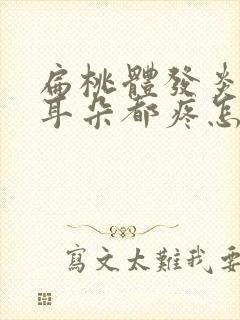 扁桃體發炎
耳朵都疼怎
寫文太難我要